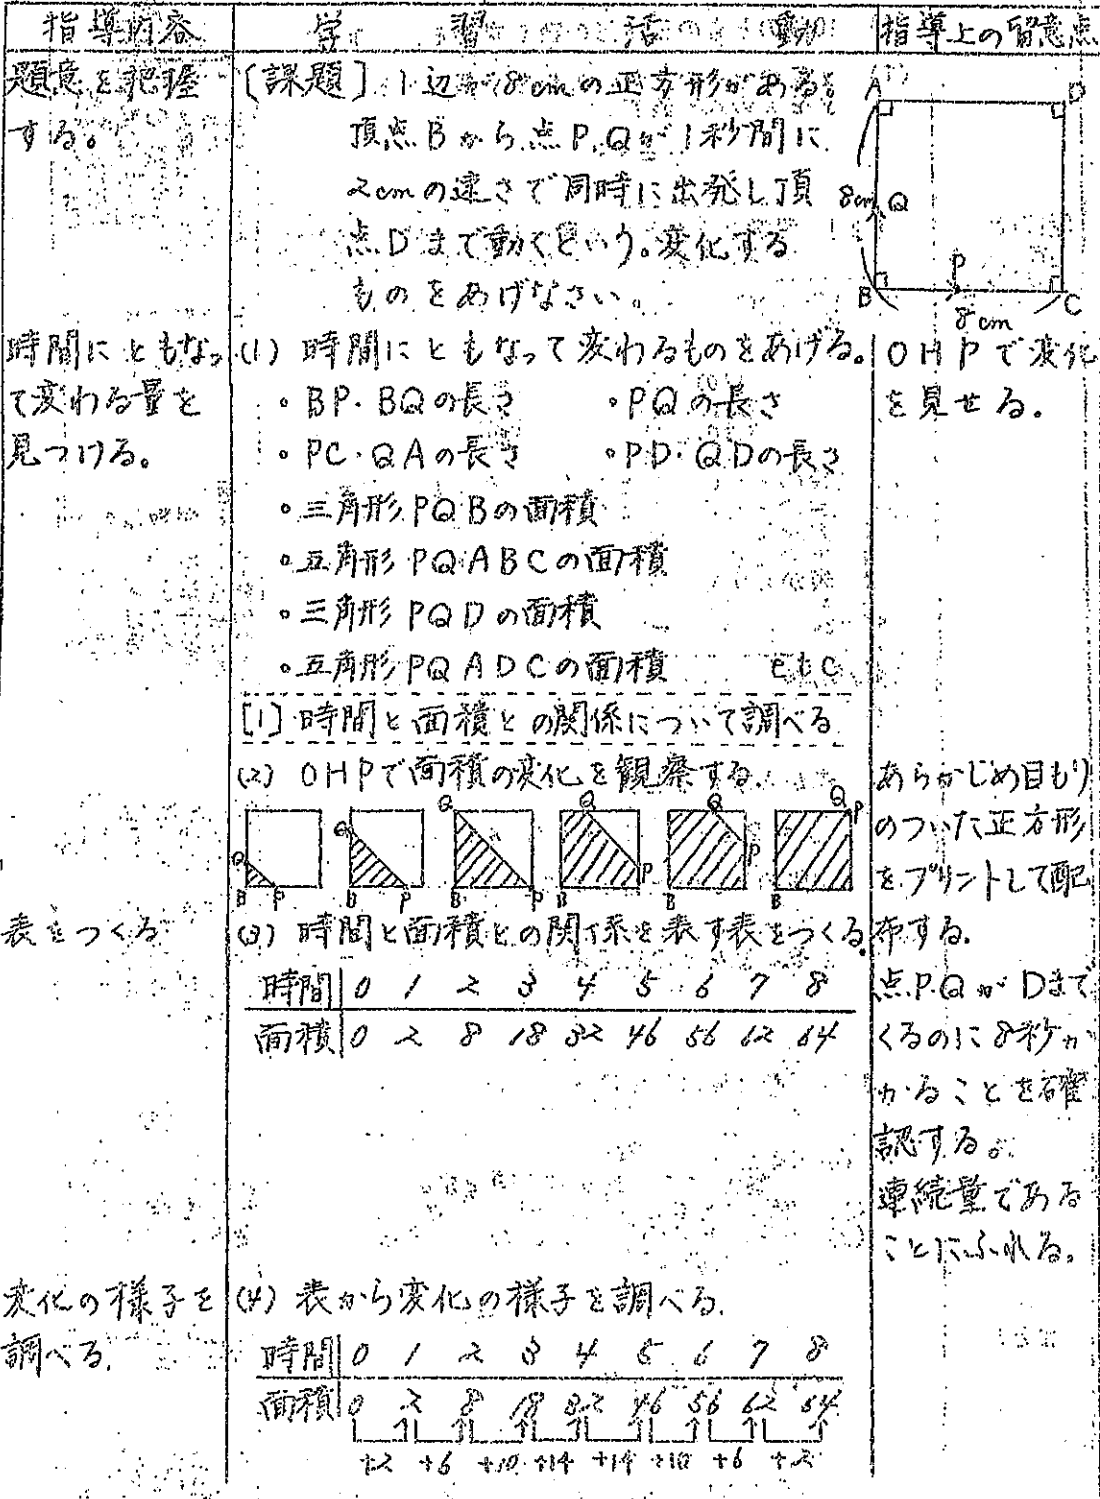 指導内容 学習活動 指導上の留意点
題意を把握
する。
[課題] 1辺が8cmの正方形がある。
頂点Bから点P,Qが1秒間に
2cmの速さで同時に出発し頂
点Dまで動くという。変化する
ものをあげなさい。
A D
8cm Q
P
B C
8cm
時間にともなっ
て変わる量を
見つける。
(1) 時間にともなって変わるものをあげる。
・BP・BQの長さ ・PQの長さ
・PC・QAの長さ ・PD・QDの長さ
・三角形PQBの面積
・五角形PQABCの面積
・三角形PQDの面積
・五角形PQADCの面積 etc
OHPで変化
を見せる。
[1] 時間と面積との関係について調べる
(2) OHPで面積の変化を観察する。
Q Q Q Q Q Q P
P P
B P B P B P B B B
あらかじめ目もり
のついた正方形
をプリントして配
布する。
表をつくる
(3) 時間と面積との関係を表す表をつくる。
時間 0 1 2 3 4 5 6 7 8
面積 0 2 8 18 32 46 56 62 64
点P.QがDまで
くるのに8秒か
かることを確
認する。
連続量である
ことにふれる。
変化の様子を
調べる。
(4) 表から変化の様子を調べる。
時間 0 1 2 3 4 5 6 7 8
面積 0 2 8 18 32 46 56 62 64
+2 +6 +10 +14 +14 +10 +6 +2